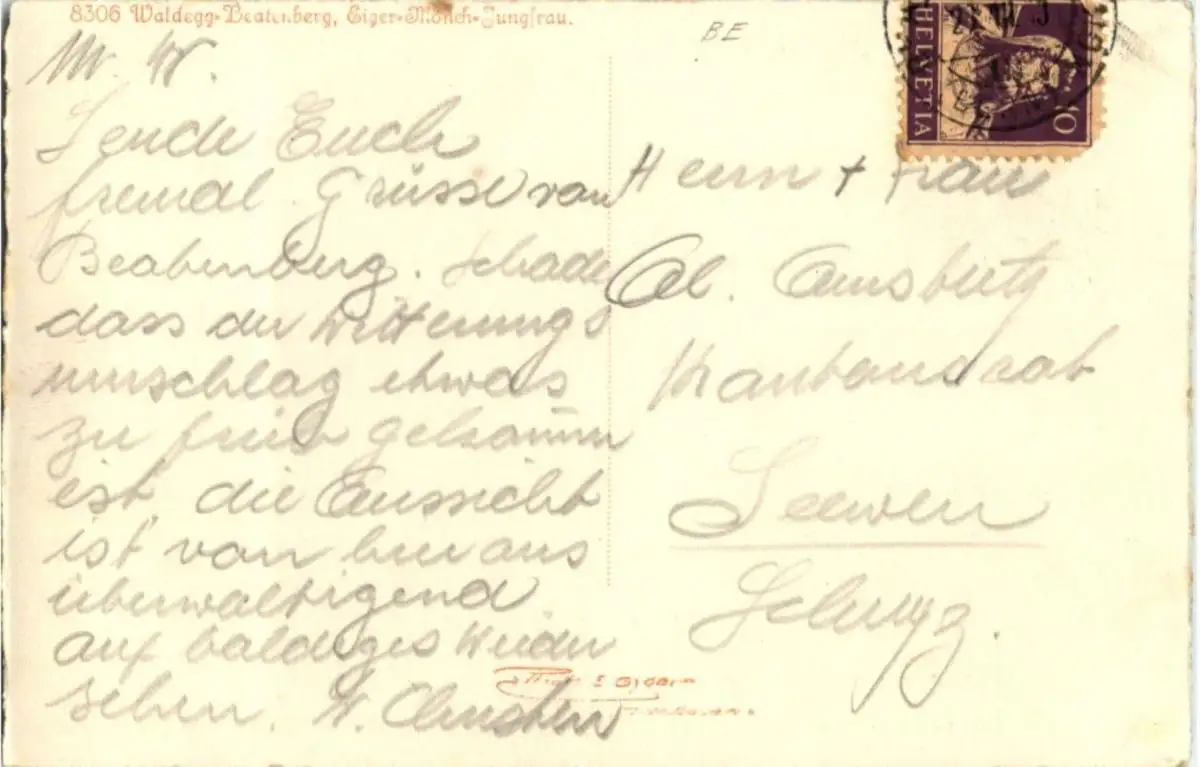 8306 Waldegg-Beatenberg, Eiger-Mönch-Jungfrau.
BE
HELVETIA
10
M. W.
Sende Euch
Grüsse von
Beatenberg. Schade
dass der Witterungs
umschlag etwas
zu früh gekommen
ist, die Aussicht
ist von hier aus
überwältigend
auf baldiges Wieder
sehen.
Herrn + Frau
Al.
Seewen
Schwyz.